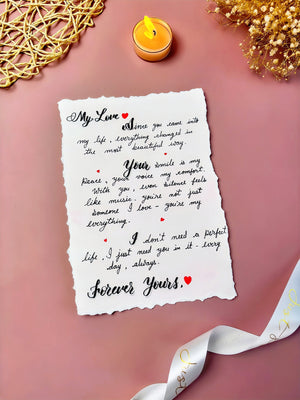 My Love ❤
Since you came into
my life, everything changed in
the most beautiful way.
Your smile is my
peace, your voice my comfort.
With you, even silence feels
like music. you're not just
someone I love - you're my
everything.
I don't need a perfect
life, I just need you in it - every
day, always.
Forever Yours. ❤